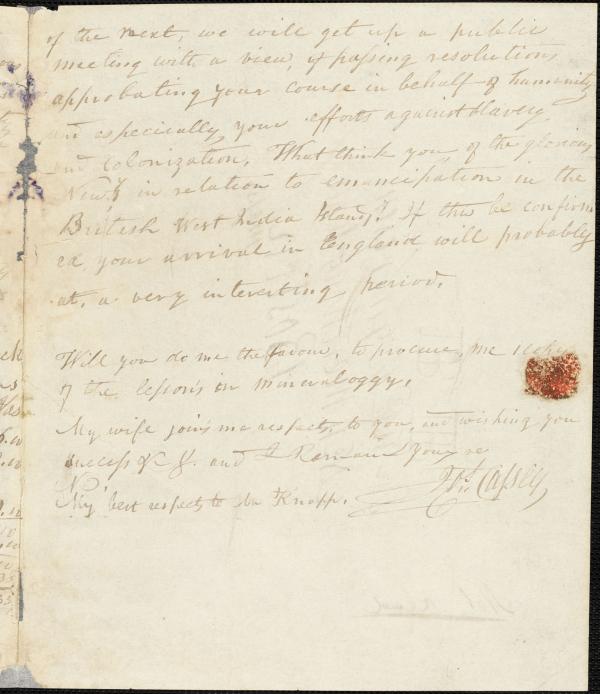 of the next, we will get up a public
meeting with a view, of passing resolutions
approbating your course in behalf of humanity
and especially your efforts against slavery
and colonization, What think you of the glorious
News in relation to emancipation in the
British West India Islands? If this be confirm
ed your arrival in England will probably
at, a very interesting period.
Will you do me the favour, to procure, me
of the lesson's in mineraloggy,
My wife joins me respects to you, and wishing you
success &c &. and I Remain Yours
Jos. Cassey
My best respects to Mr Knapp.